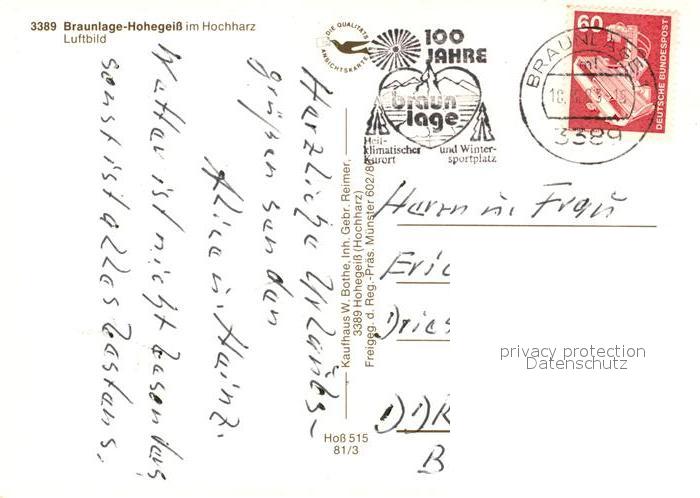 3389 Braunlage-Hohegeiß im Hochharz
Luftbild
DIE QUALITÄTS
ANSICHTSKARTE
100
JAHRE
braun
lage
Heil-
klimatischer
Kurort
und Winter-
sportplatz
BRAUNLAGE
3389
60
DEUTSCHE BUNDESPOST
Herzliche Urlaubs-
grüßen senden
Alice u. Heinz.
Wetter ist nicht besonders
sonst ist alles bestens.
Kaufhaus W. Bothe, Inh. Gebr. Reimer,
3389 Hohegeiß (Hochharz)
Freigeg. d. Reg.-Präs. Münster 602/8
Hoß 515
81/3
Herrn u. Frau
Eric
Dries
DDR
B
privacy protection
Datenschutz